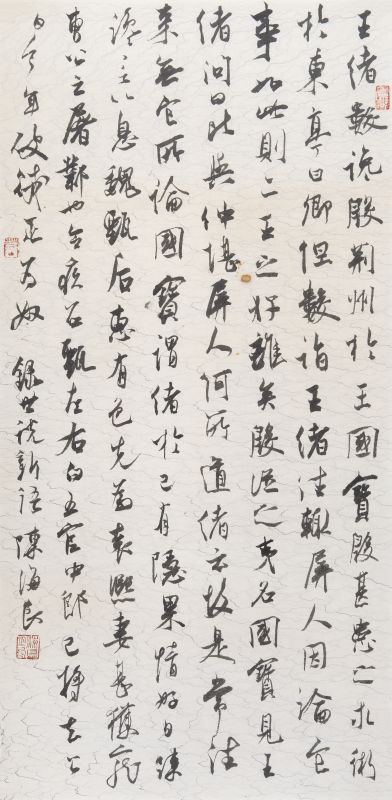 王緒數說殷荊州於王國寶殷甚患之求術
於東亭曰卿但數詣王緒往輒屏人因論它
事如此則二王之好離矣殷從之國寶見王
緒問曰比與仲堪屏人何所道緒云故是常往
來無它所論國寶謂緒於己有隱果情好日疎
讒言以息魏甄后惠有色先為袁熙妻甚獲寵
曹公之屠鄴也令疾召甄左右白五官中郎已將去公
曰今年破賊正為奴 錄世說新語 陳海良